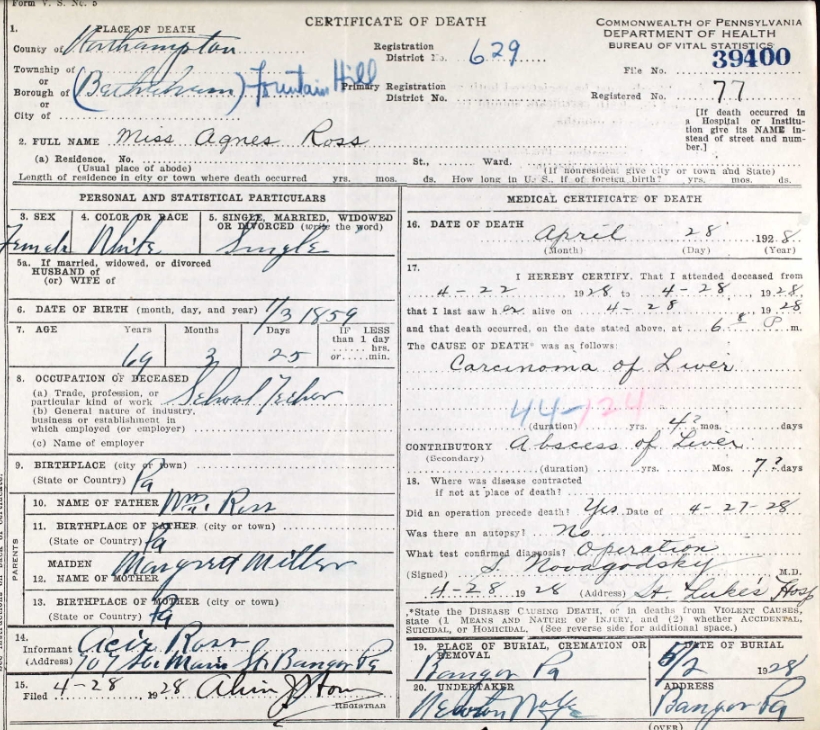 Form V. S. No. 5
CERTIFICATE OF DEATH
COMMONWEALTH OF PENNSYLVANIA
DEPARTMENT OF HEALTH
BUREAU OF VITAL STATISTICS
1. PLACE OF DEATH
County of Northampton
Township of
or
Borough of (Bethlehem) Fountain Hill
or
City of
Registration District No. 629
Primary Registration District No.
File No. 39400
Registered No. 77
[If death occurred in
a Hospital or Institu-
tion give its NAME in-
stead of street and num-
ber.]
2. FULL NAME Miss Agnes Ross
(a) Residence. No. St., Ward.
(Usual place of abode) (If nonresident give city or town and State)
Length of residence in city or town where death occurred yrs. mos. ds. How long in U. S., if of foreign birth? yrs. mos. ds.
PERSONAL AND STATISTICAL PARTICULARS
3. SEX
Female
4. COLOR OR RACE
White
5. SINGLE, MARRIED, WIDOWED
OR DIVORCED (write the word)
Single
5a. If married, widowed, or divorced
HUSBAND of
(or) WIFE of
6. DATE OF BIRTH (month, day, and year) 1/3 1859
7. AGE Years Months Days IF LESS
than 1 day
hrs.
or min.
69 3 25
8. OCCUPATION OF DECEASED
(a) Trade, profession, or
particular kind of work School Techer
(b) General nature of industry,
business or establishment in
which employed (or employer)
(c) Name of employer
9. BIRTHPLACE (city or town)
(State or Country) Pa
PARENTS
10. NAME OF FATHER Wm. Ross
11. BIRTHPLACE OF FATHER (city or town)
(State or Country) Pa
12. MAIDEN NAME OF MOTHER Margret Miller
13. BIRTHPLACE OF MOTHER (city or town)
(State or Country) Pa
14.
Informant Ross
(Address) 707 So. Main St Bangor Pa
15.
Filed 4-28, 1928
REGISTRAR
MEDICAL CERTIFICATE OF DEATH
16. DATE OF DEATH April 28 1928
(Month) (Day) (Year)
17.
I HEREBY CERTIFY, That I attended deceased from
4-22 1928 to 4-28, 1928,
that I last saw her alive on 4-28 1928
and that death occurred, on the date stated above, at 6 P m.
The CAUSE OF DEATH* was as follows:
Carcinoma of Liver
44-124
(duration) yrs. 4? mos. days
CONTRIBUTORY Abscess of Liver
(Secondary)
(duration) yrs. Mos. 7? days
18. Where was disease contracted
if not at place of death?
Did an operation precede death? Yes Date of 4-27-28
Was there an autopsy? No
What test confirmed diagnosis? Operation
(Signed) S. Novagodsky M.D.
4-28 1928 (Address) St. Luke's Hosp
*State the DISEASE CAUSING DEATH, or in deaths from VIOLENT CAUSES,
state (1 MEANS AND NATURE OF INJURY, and (2) whether ACCIDENTAL,
SUICIDAL, or HOMICIDAL, (See reverse side for additional space.)
19. PLACE OF BURIAL, CREMATION OR
REMOVAL
Bangor Pa
DATE OF BURIAL
5/2 1928
20. UNDERTAKER
Newton Wolfe
ADDRESS
Bangor Pa
(OVER)